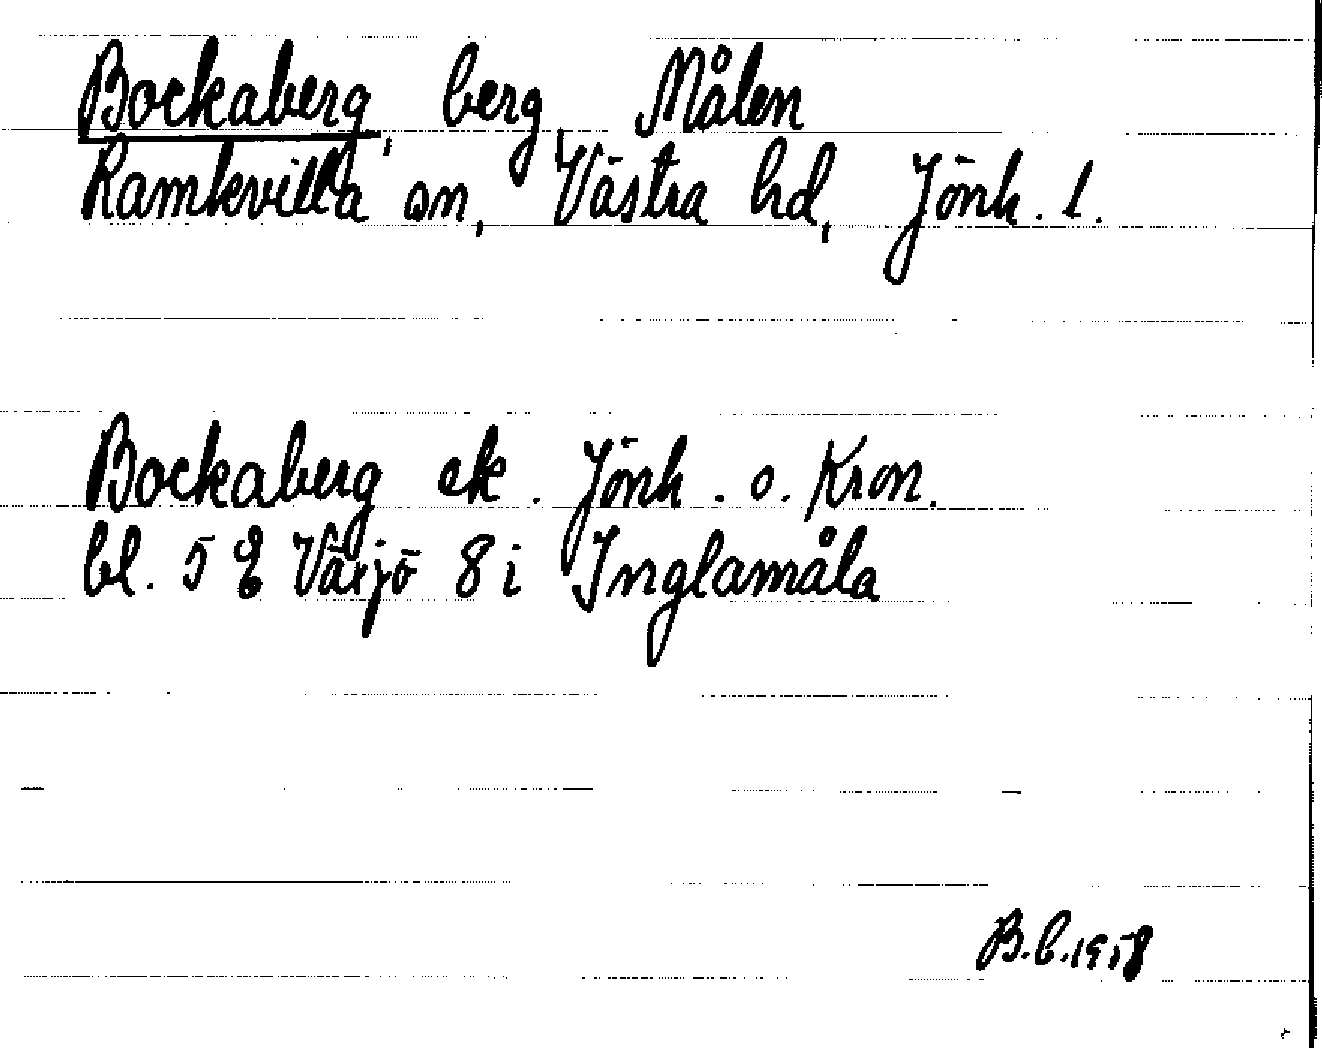 Bockaberg, berg, Målen
Ramkvilla sn, Västra hd, Jönk. l.
Bockaberg ek. Jönk. o. Kron.
bl. 5 Växjö 8 i Inglamåla
B.b.1958